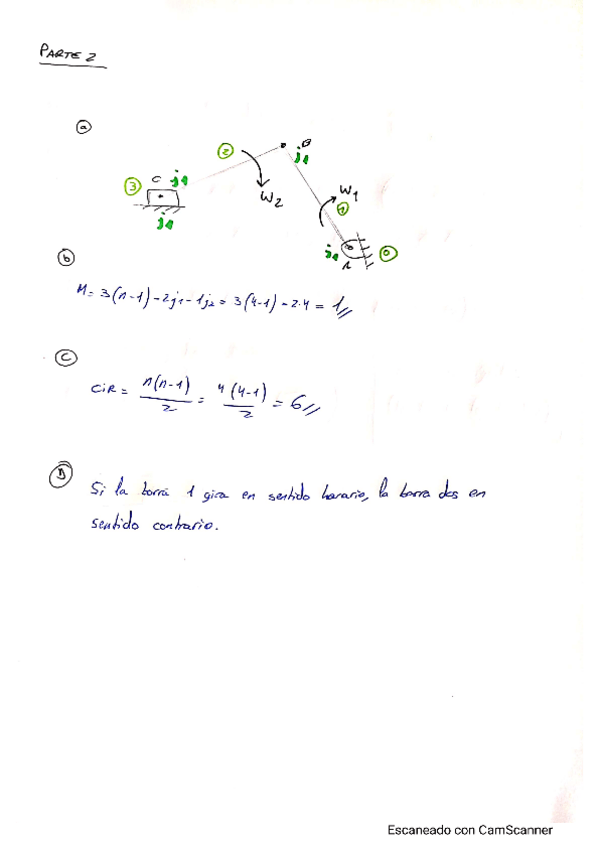 PARTE 2
a
B
2
j1
3
C j1
W2
W1
1
j1
j1
0
A
b
M = 3(n-1) - 2j1 - 1j2 = 3(4-1) - 2·4 = 1//
C
CIR = n(n-1)/2 = 4(4-1)/2 = 6//
D
Si la barra 1 gira en sentido horario, la barra dos en
sentido contrario.
Escaneado con CamScanner